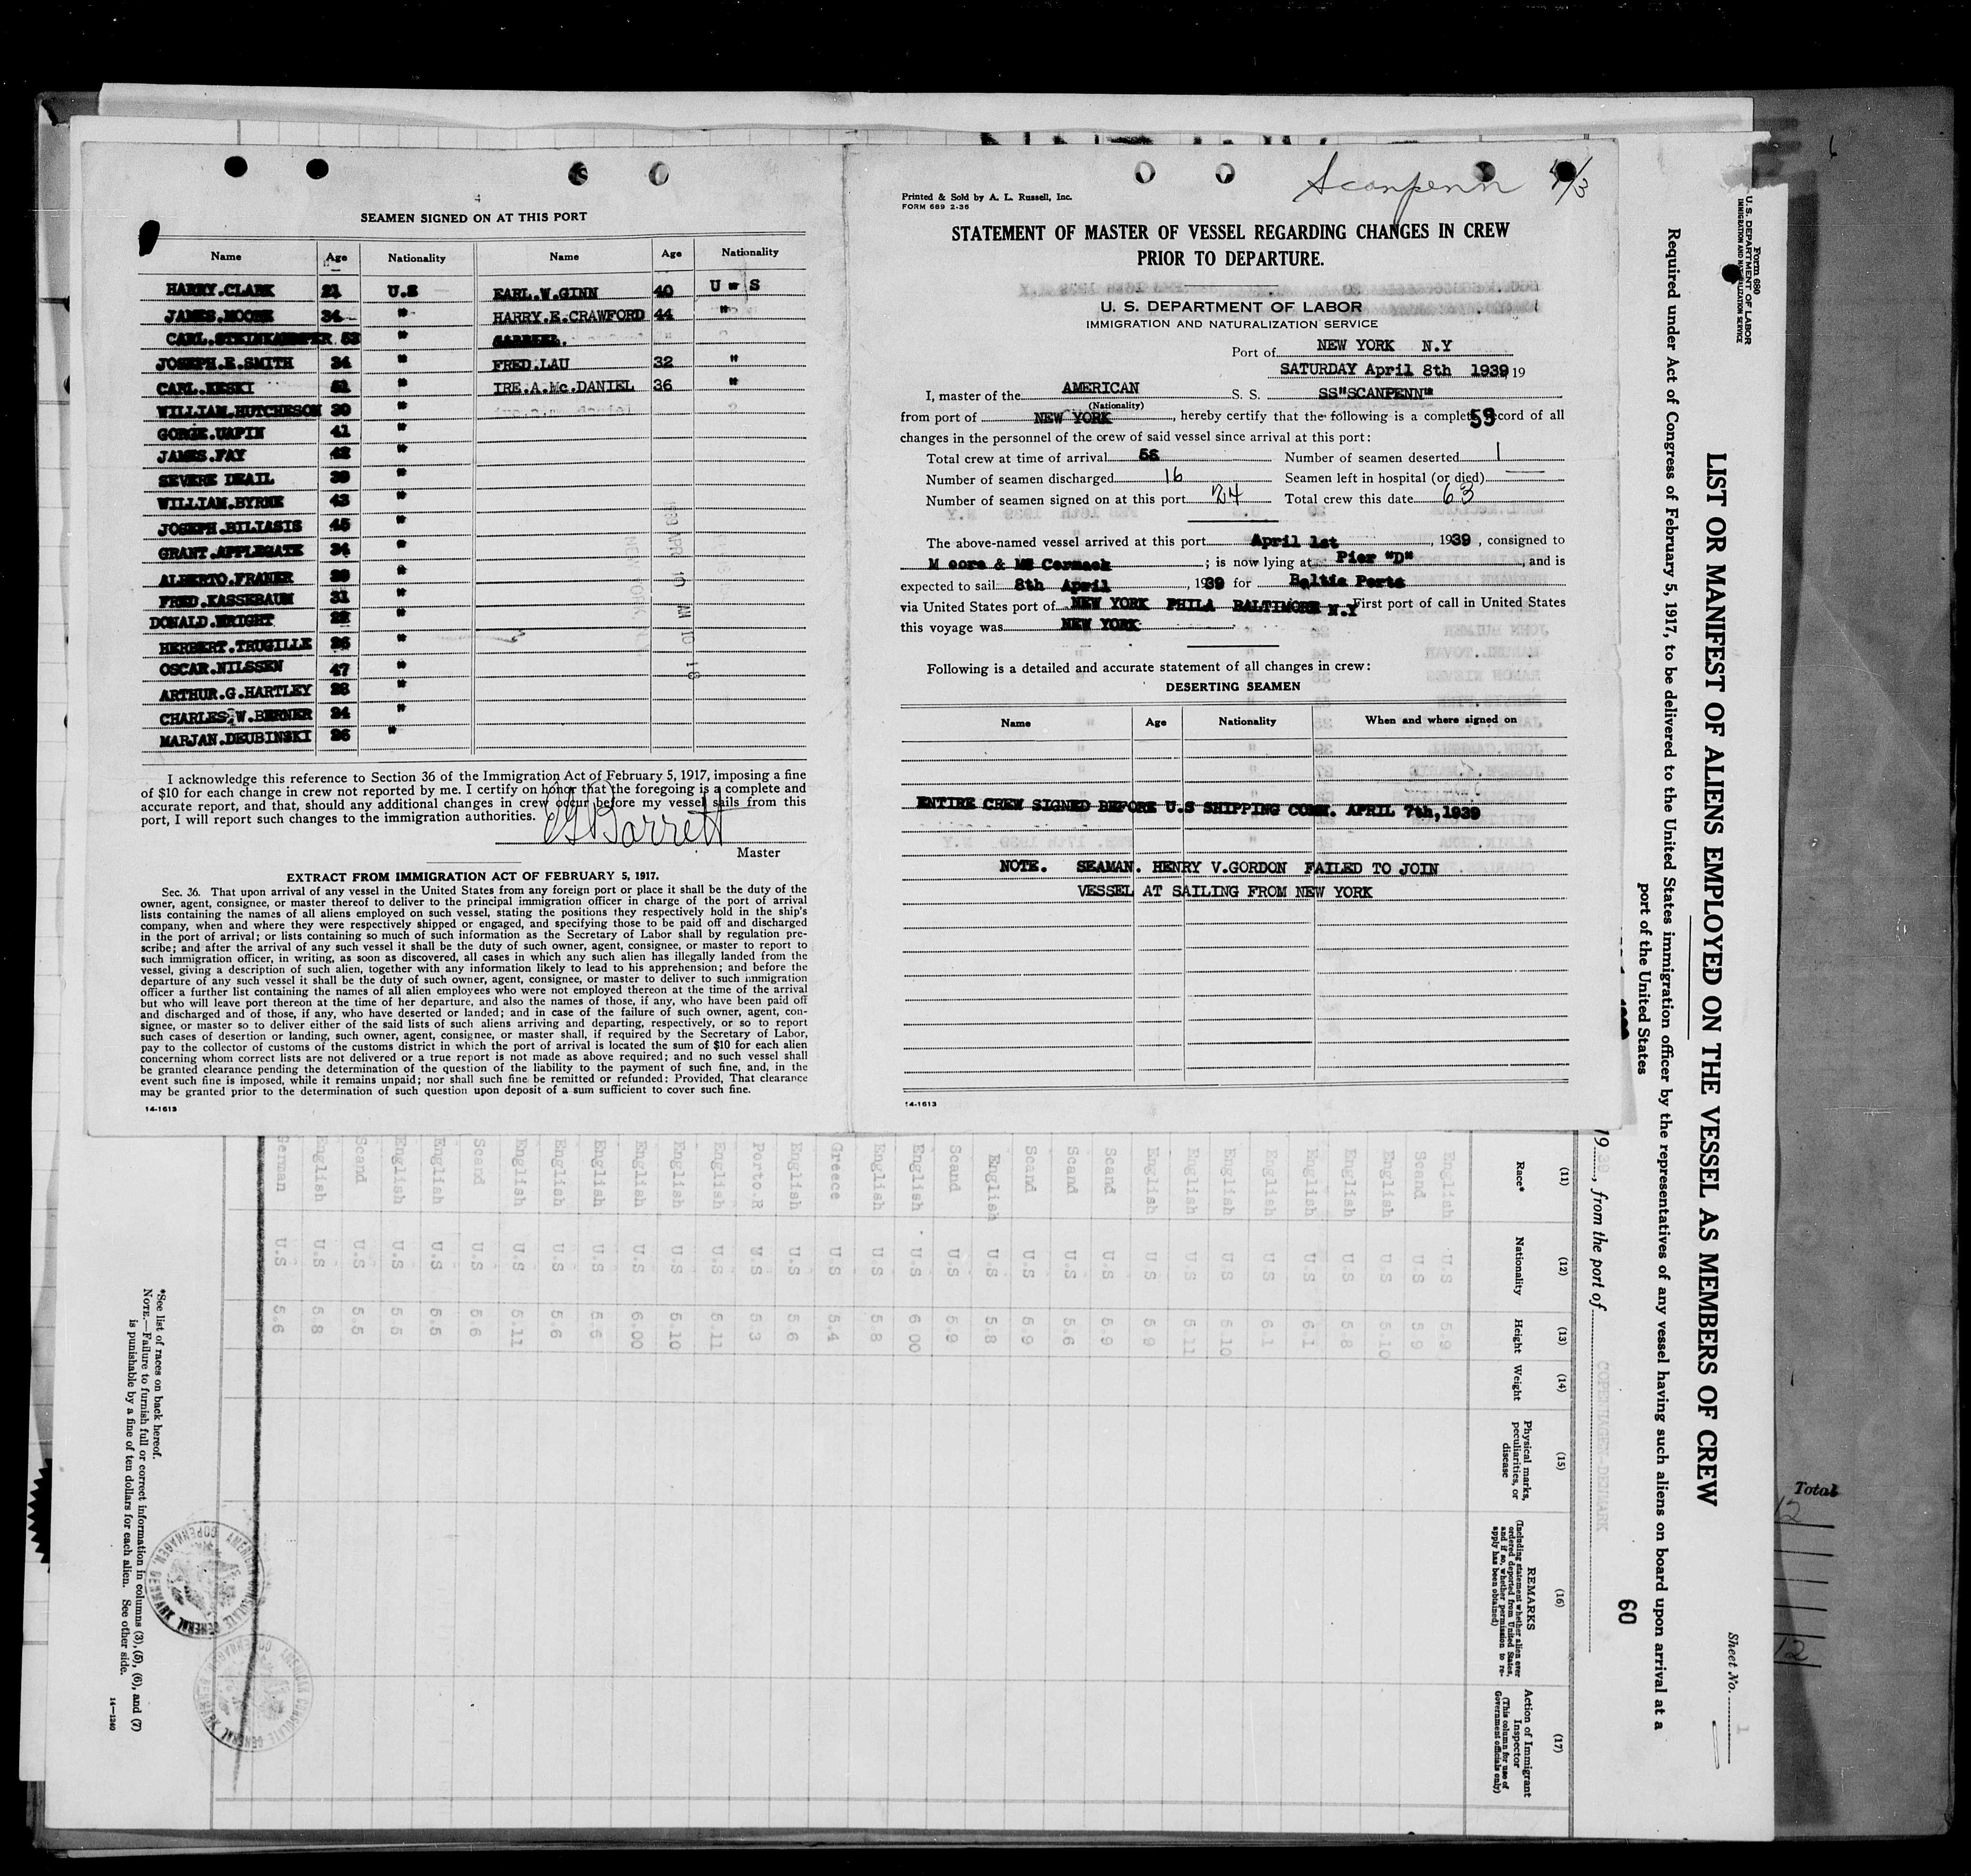 SEAMEN SIGNED ON AT THIS PORT
Name Age Nationality Name Age Nationality
HARRY.CLARK 21 U.S EARL.W.GINN 40 U S
JAMES.MOORE 34 " HARRY.E.CRAWFORD 44 "
CARL.STEINKAMPER 53 "
JOSEPH.E.SMITH 34 " FRED.LAU 32 "
CARL.KESKI 51 " IRE.A.Mc.DANIEL 36 "
WILLIAM.HUTCHESON 30 "
GORGE.UAPIN 41 "
JAMES.FAY 42 "
SEVERE DRAIL 39 "
WILLIAM.BYRNE 43 "
JOSEPH.BILIASIS 45 "
GRANT.APPLEGATE 34 "
ALBERTO.FRANER 29 "
FRED.KASSEBAUM 31 "
DONALD.WRIGHT 22 "
HERBERT.TRUGILLE 26 "
OSCAR.NILSSEN 47 "
ARTHUR.G.HARTLEY 28 "
CHARLES.W.BERNER 24 "
MARJAN.DEUBINSKI 26 "
I acknowledge this reference to Section 36 of the Immigration Act of February 5, 1917, imposing a fine
of $10 for each change in crew not reported by me. I certify on honor that the foregoing is a complete and
accurate report, and that, should any additional changes in crew occur before my vessel sails from this
port, I will report such changes to the immigration authorities.
EGBarrett
Master
EXTRACT FROM IMMIGRATION ACT OF FEBRUARY 5, 1917.
Sec. 36. That upon arrival of any vessel in the United States from any foreign port or place it shall be the duty of the
owner, agent, consignee, or master thereof to deliver to the principal immigration officer in charge of the port of arrival
lists containing the names of all aliens employed on such vessel, stating the positions they respectively hold in the ship's
company, when and where they were respectively shipped or engaged, and specifying those to be paid off and discharged
in the port of arrival; or lists containing so much of such information as the Secretary of Labor shall by regulation pre-
scribe; and after the arrival of any such vessel it shall be the duty of such owner, agent, consignee, or master to report to
such immigration officer, in writing, as soon as discovered, all cases in which any such alien has illegally landed from the
vessel, giving a description of such alien, together with any information likely to lead to his apprehension; and before the
departure of any such vessel it shall be the duty of such owner, agent, consignee, or master to deliver to such immigration
officer a further list containing the names of all alien employees who were not employed thereon at the time of the arrival
but who will leave port thereon at the time of her departure, and also the names of those, if any, who have been paid off
and discharged and of those, if any, who have deserted or landed; and in case of the failure of such owner, agent, con-
signee, or master so to deliver either of the said lists of such aliens arriving and departing, respectively, or so to report
such cases of desertion or landing, such owner, agent, consignee, or master shall, if required by the Secretary of Labor,
pay to the collector of customs of the customs district in which the port of arrival is located the sum of $10 for each alien
concerning whom correct lists are not delivered or a true report is not made as above required; and no such vessel shall
be granted clearance pending the determination of the question of the liability to the payment of such fine, and, in the
event such fine is imposed, while it remains unpaid; nor shall such fine be remitted or refunded: Provided, That clearance
may be granted prior to the determination of such question upon deposit of a sum sufficient to cover such fine.
14-1613
Scanpenn 4/3
Printed & Sold by A. L. Russell, Inc.
FORM 689 2-36
STATEMENT OF MASTER OF VESSEL REGARDING CHANGES IN CREW
PRIOR TO DEPARTURE.
U. S. DEPARTMENT OF LABOR
IMMIGRATION AND NATURALIZATION SERVICE
Port of NEW YORK N.Y
SATURDAY April 8th 1939, 19
I, master of the AMERICAN S. S. SS"SCANPENN"
(Nationality)
from port of NEW YORK, hereby certify that the following is a complete record of all
changes in the personnel of the crew of said vessel since arrival at this port:
59
Total crew at time of arrival 56 Number of seamen deserted 1
Number of seamen discharged 16 Seamen left in hospital (or died)
Number of seamen signed on at this port 24 Total crew this date 63
The above-named vessel arrived at this port April 1st, 1939, consigned to
Moore & Mc Cormack; is now lying at Pier "D", and is
expected to sail 8th April, 1939 for Baltic Ports
via United States port of NEW YORK PHILA BALTIMORE N.Y First port of call in United States
this voyage was NEW YORK
Following is a detailed and accurate statement of all changes in crew:
DESERTING SEAMEN
Name Age Nationality When and where signed on
ENTIRE CREW SIGNED BEFORE U.S SHIPPING COMM. APRIL 7th,1939
NOTE. SEAMAN. HENRY V.GORDON FAILED TO JOIN
VESSEL AT SAILING FROM NEW YORK
14-1613
Form 680
U. S. DEPARTMENT OF LABOR
IMMIGRATION AND NATURALIZATION SERVICE
Sheet No. 1
LIST OR MANIFEST OF ALIENS EMPLOYED ON THE VESSEL AS MEMBERS OF CREW
Required under Act of Congress of February 5, 1917, to be delivered to the United States immigration officer by the representatives of any vessel having such aliens on board upon arrival at a
port of the United States
60
1939, from the port of COPENHAGEN-DENMARK
(11) (12) (13) (14) (15) (16) (17)
Race* Nationality Height Weight Physical marks, peculiarities, or disease
REMARKS
(Including statement whether alien ever ordered deported from United States, and if so, whether permission to re-apply has been obtained)
Action of Immigrant Inspector
(This column for use of Government officials only)
English U.S 5.9
Scand U.S 5 9
English U.S 5.10
English U.S 5 8
English U.S 6 1
English U.S 6.1
English U.S 5.10
English U.S 5 11
English U.S 5 9
Scand U.S 5.9
Scand U.S 5.6
Scand U.S 5.9
English U.S 5.8
Scand U.S 5.9
English U.S 6 00
English U.S 5.8
Greece U.S 5.4
English U.S 5.6
Porto.R U.S 5.3
English U.S 5.11
English U.S 5.10
English U.S 6.00
English U.S 5.6
English U.S 5.6
English U.S 5.11
Scand U.S 5.6
English U.S 5.5
English U.S 5.5
Scand U.S 5.5
English U.S 5 8
German U.S 5.6
*See list of races on back hereof.
NOTE.—Failure to furnish full or correct information in columns (3), (5), (6), and (7)
is punishable by a fine of ten dollars for each alien. See other side.
14—1240
AMERICAN CONSULATE GENERAL
COPENHAGEN, DENMARK
Total
12
12